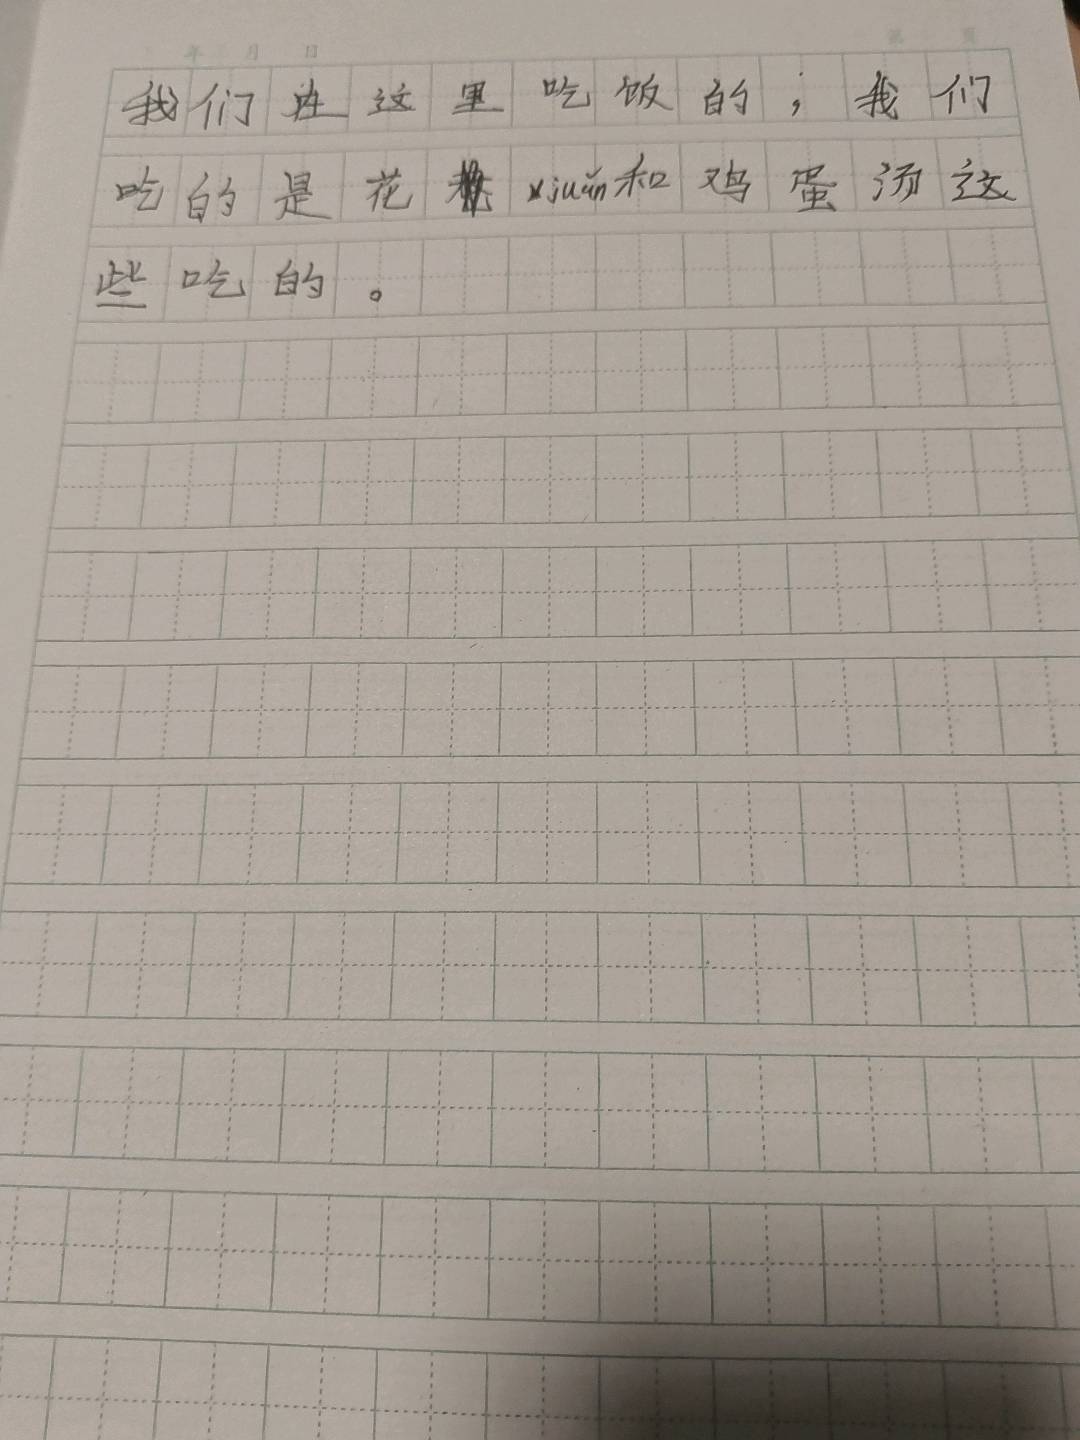 年 月 日
我们在这里吃饭的；我们
吃的是花 juǎn和鸡蛋汤这
些吃的。